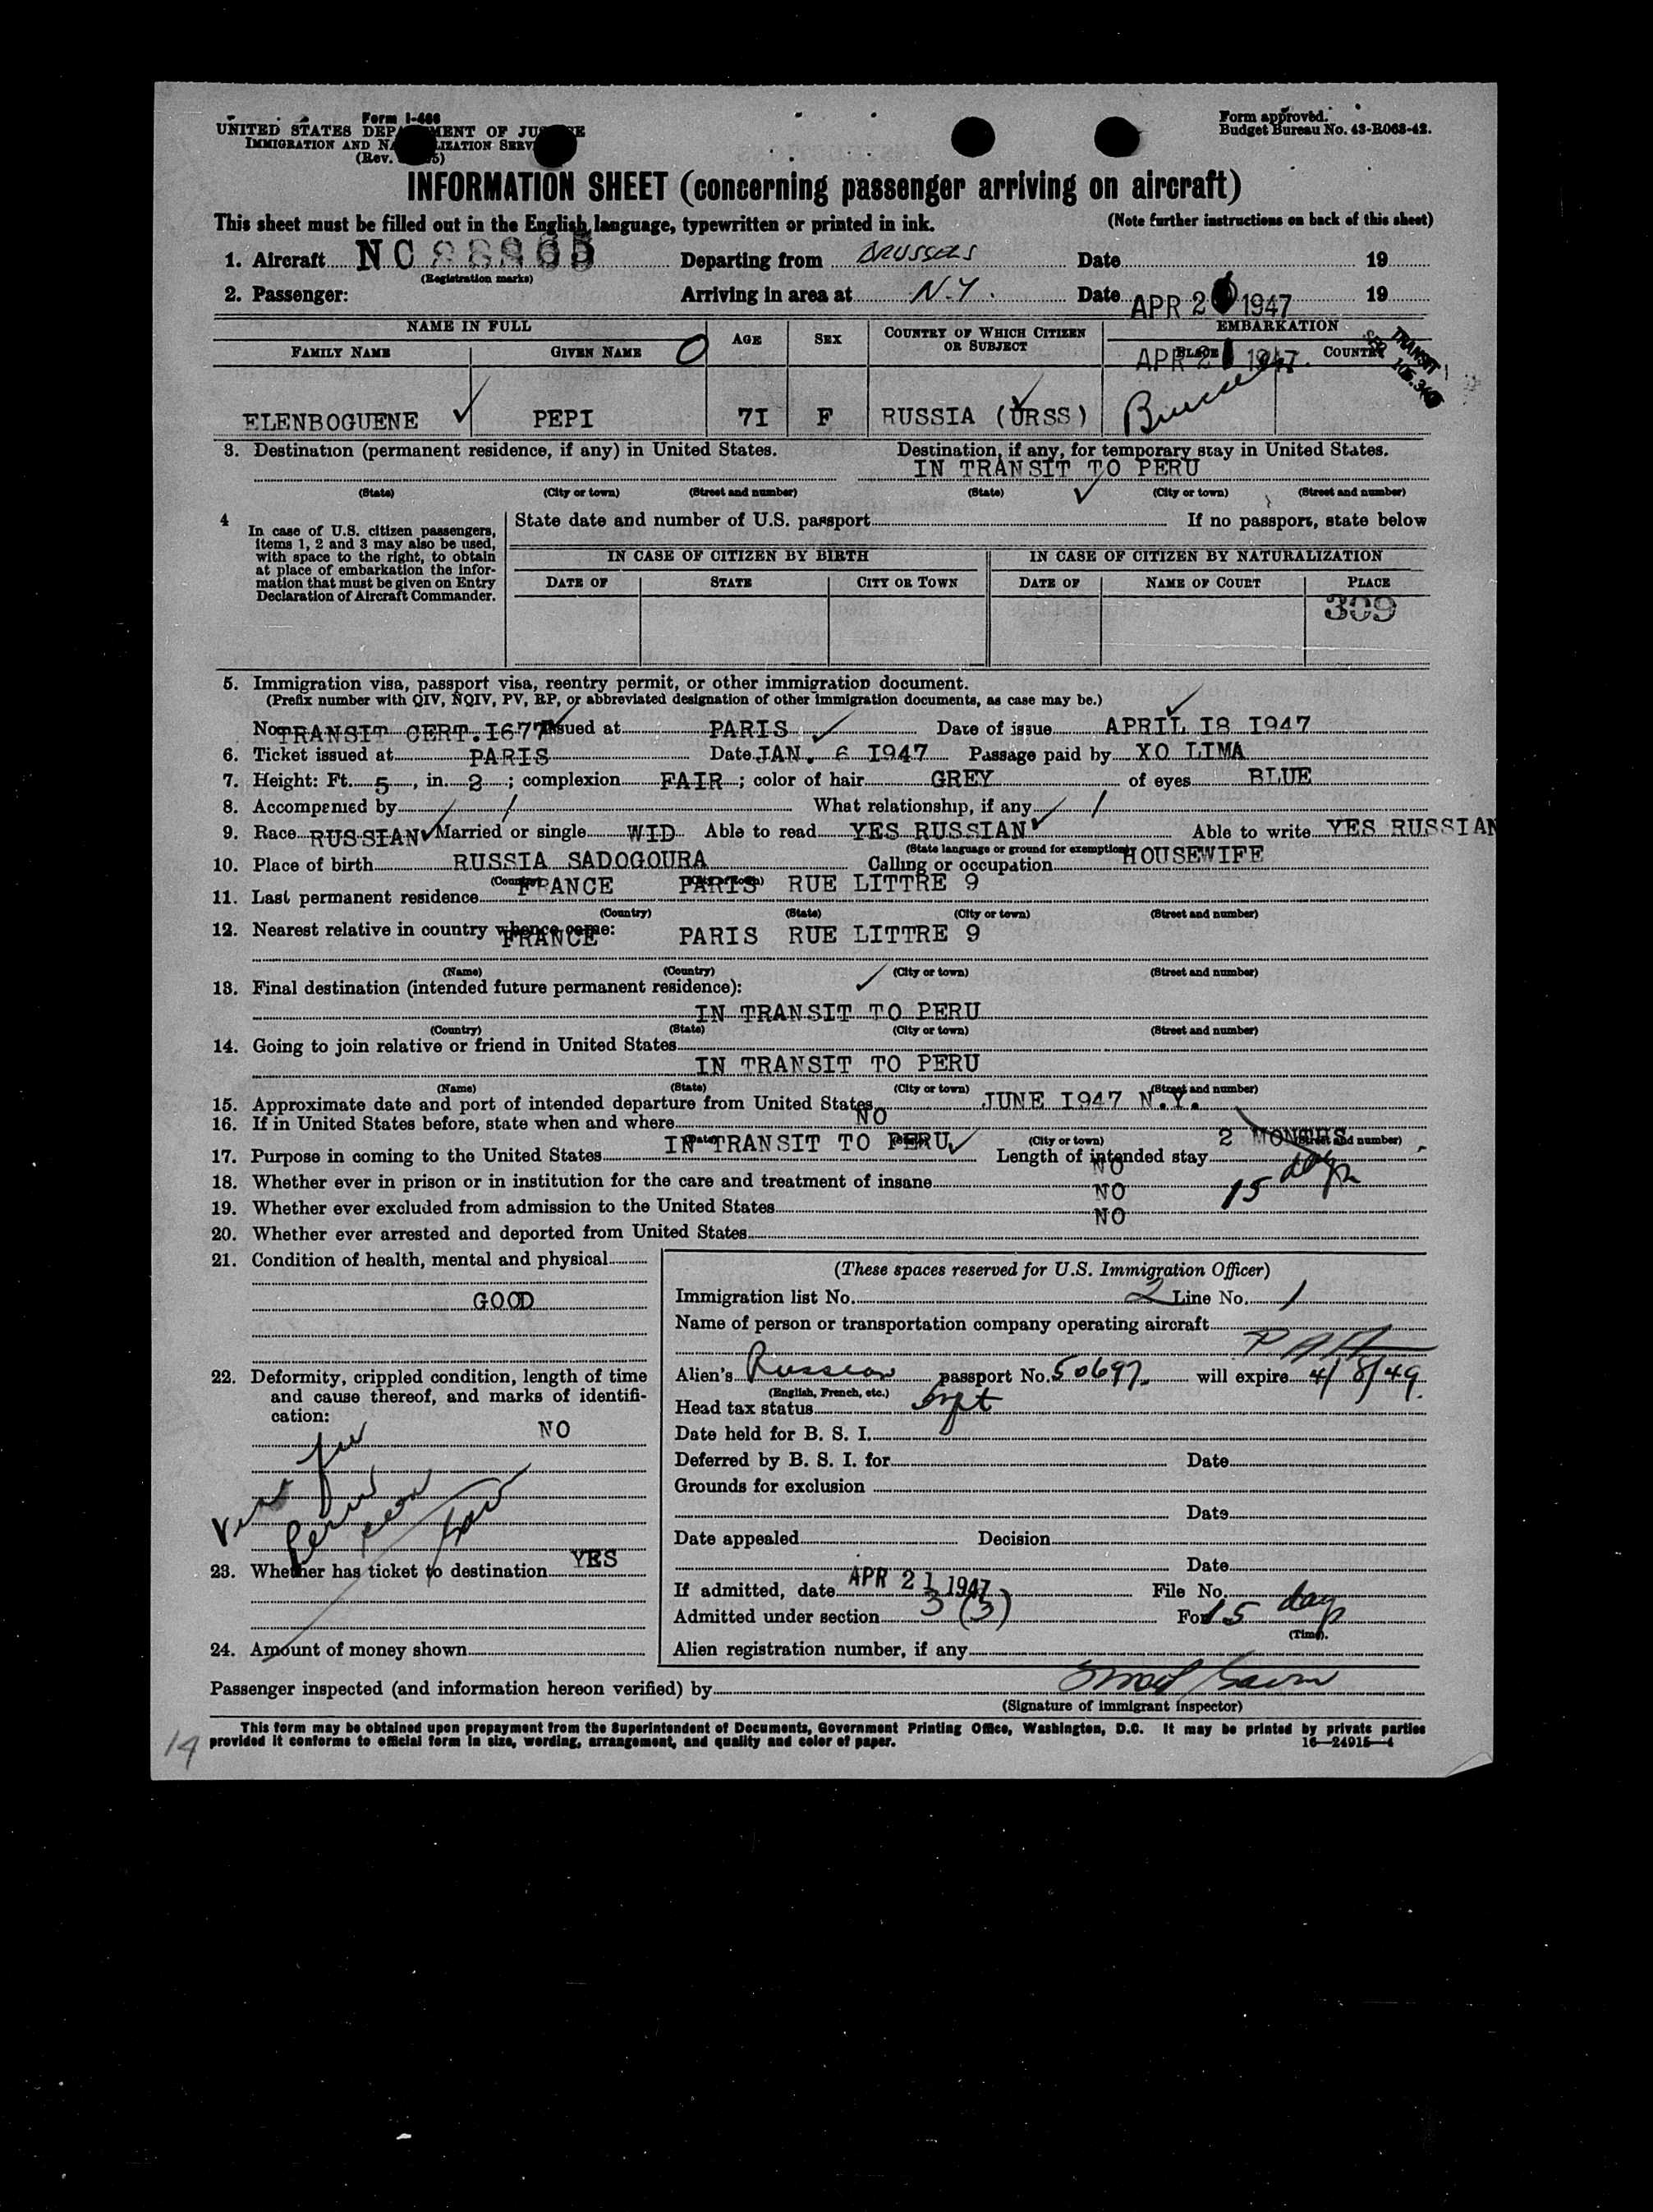 Form I-466
UNITED STATES DEP MENT OF JU E
IMMIGRATION AND NA LIZATION SERV
(Rev. 5)
Form approved.
Budget Bureau No. 43-R063-42.
INFORMATION SHEET (concerning passenger arriving on aircraft)
This sheet must be filled out in the English language, typewritten or printed in ink. (Note further instructions on back of this sheet)
1. Aircraft NC 88865 Departing from BRUSSELS Date 19
(Registration marks)
2. Passenger: Arriving in area at N.Y. Date APR 2 1947 19
NAME IN FULL AGE SEX COUNTRY OF WHICH CITIZEN OR SUBJECT EMBARKATION
FAMILY NAME GIVEN NAME PLACE COUNTRY
APR 21 1947
TRANSIT
ELENBOGUENE PEPI 7I F RUSSIA (URSS)
3. Destination (permanent residence, if any) in United States. Destination, if any, for temporary stay in United States.
IN TRANSIT TO PERU
(State) (City or town) (Street and number) (State) (City or town) (Street and number)
4 In case of U.S. citizen passengers, items 1, 2 and 3 may also be used, with space to the right, to obtain at place of embarkation the information that must be given on Entry Declaration of Aircraft Commander.
State date and number of U.S. passport If no passport, state below
IN CASE OF CITIZEN BY BIRTH IN CASE OF CITIZEN BY NATURALIZATION
DATE OF STATE CITY OR TOWN DATE OF NAME OF COURT PLACE
309
5. Immigration visa, passport visa, reentry permit, or other immigration document.
(Prefix number with QIV, NQIV, PV, RP, or abbreviated designation of other immigration documents, as case may be.)
No. TRANSIT CERT.I677 Issued at PARIS Date of issue APRIL I8 I947
6. Ticket issued at PARIS Date JAN. 6 I947 Passage paid by XO LIMA
7. Height: Ft. 5, in. 2; complexion FAIR; color of hair GREY of eyes BLUE
8. Accompanied by / What relationship, if any /
9. Race RUSSIAN Married or single WID Able to read YES RUSSIAN Able to write YES RUSSIAN
(State language or ground for exemption)
10. Place of birth RUSSIA SADOGOURA Calling or occupation HOUSEWIFE
(Country) (City or town)
11. Last permanent residence FRANCE PARIS RUE LITTRE 9
(Country) (State) (City or town) (Street and number)
12. Nearest relative in country whence came:
FRANCE PARIS RUE LITTRE 9
(Name) (Country) (City or town) (Street and number)
13. Final destination (intended future permanent residence):
IN TRANSIT TO PERU
(Country) (State) (City or town) (Street and number)
14. Going to join relative or friend in United States
IN TRANSIT TO PERU
(Name) (State) (City or town) (Street and number)
15. Approximate date and port of intended departure from United States JUNE I947 N.Y.
16. If in United States before, state when and where NO
(Date) (State) (City or town) (Street and number)
17. Purpose in coming to the United States IN TRANSIT TO PERU Length of intended stay 2 MONTHS
15 days
18. Whether ever in prison or in institution for the care and treatment of insane NO
19. Whether ever excluded from admission to the United States NO
20. Whether ever arrested and deported from United States NO
21. Condition of health, mental and physical
GOOD
22. Deformity, crippled condition, length of time and cause thereof, and marks of identification:
NO
23. Whether has ticket to destination YES
24. Amount of money shown
(These spaces reserved for U.S. Immigration Officer)
Immigration list No. 2 Line No. 1
Name of person or transportation company operating aircraft
P A A
Alien's Russian passport No. 50697 will expire 4/8/49
(English, French, etc.)
Head tax status
Date held for B. S. I.
Deferred by B. S. I. for Date
Grounds for exclusion
Date
Date appealed Decision
Date
If admitted, date APR 21 1947 File No.
Admitted under section 3 (3) For 15 days
(Time).
Alien registration number, if any
Passenger inspected (and information hereon verified) by
(Signature of immigrant inspector)
This form may be obtained upon prepayment from the Superintendent of Documents, Government Printing Office, Washington, D.C. It may be printed by private parties
provided it conforms to official form in size, wording, arrangement, and quality and color of paper. 16—24915-4
14